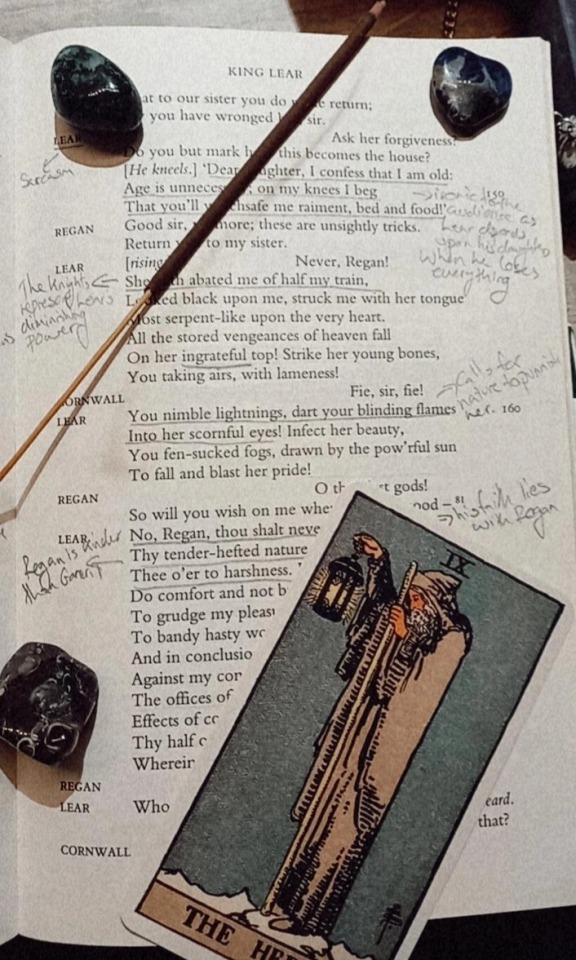 KING LEAR
at to our sister you do return;
you have wronged sir.
Ask her forgiveness?
LEAR
Do you but mark this becomes the house?
[He kneels.] 'Dear ghter, I confess that I am old:
Sarcasm
Age is unneces on my knees I beg
That you'll chsafe me raiment, bed and food!'
→ ironic to the audience as Lear depends upon his daughters when he loses everything
REGAN Good sir, more; these are unsightly tricks.
Return to my sister.
LEAR [rising Never, Regan!
The Knights represent Lear's diminishing power
She th abated me of half my train,
Looked black upon me, struck me with her tongue
Most serpent-like upon the very heart.
All the stored vengeances of heaven fall
On her ingrateful top! Strike her young bones,
You taking airs, with lameness!
CORNWALL Fie, sir, fie!
LEAR You nimble lightnings, dart your blinding flames 160
→ calls for nature to punish her.
Into her scornful eyes! Infect her beauty,
You fen-sucked fogs, drawn by the pow'rful sun
To fall and blast her pride!
REGAN O th t gods!
So will you wish on me whe ood –
⇒ his faith lies with Regan
LEAR No, Regan, thou shalt neve
Regan is kinder than Goneril
Thy tender-hefted nature
Thee o'er to harshness.
Do comfort and not b
To grudge my pleas
To bandy hasty wo
And in conclusio
Against my com
The offices of
Effects of co
Thy half o
Wherein
REGAN
LEAR Who eard.
that?
CORNWALL
IX
THE HER